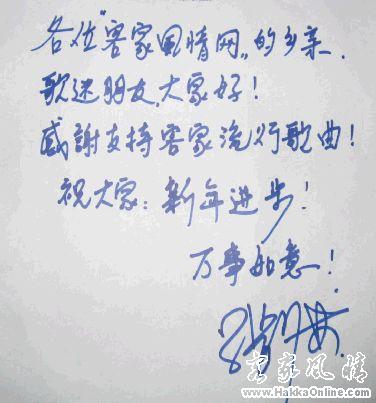 各位“客家风情网”的乡亲、
歌迷朋友,大家好!
感謝支持客家流行歌曲!
祝大家:新年进步!
万事如意!
客家风情
www.HakkaOnline.com